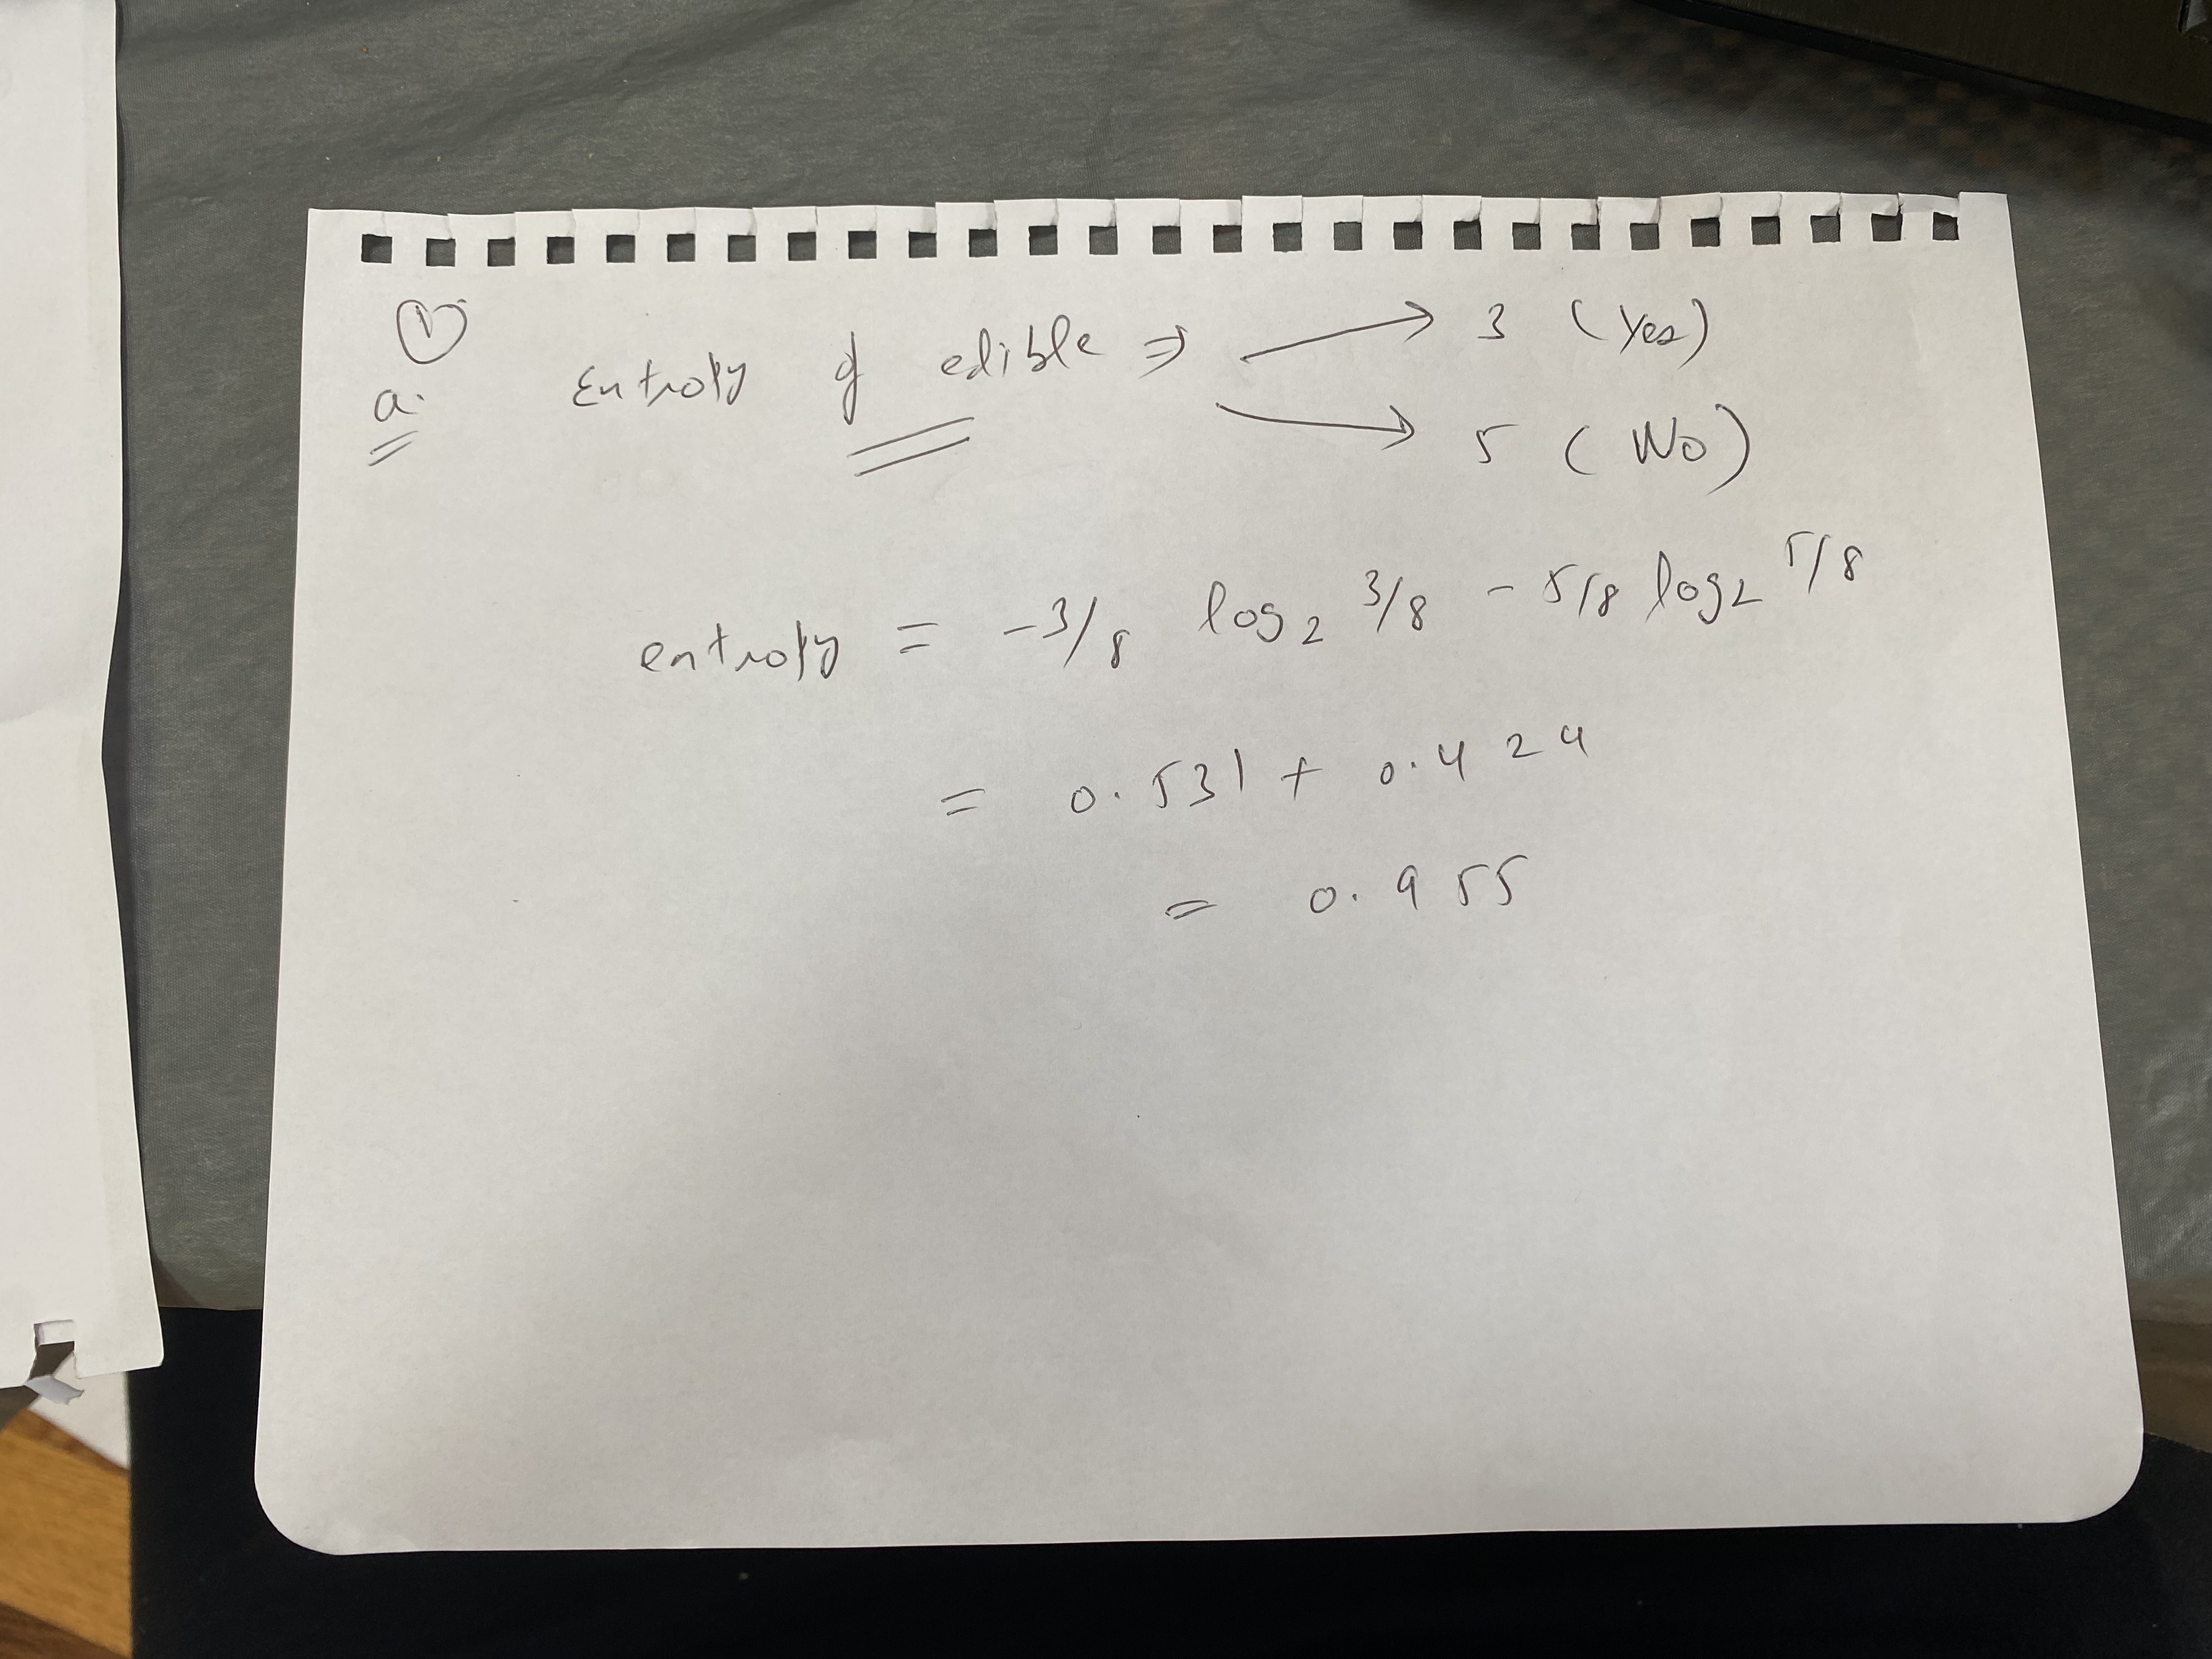 ①
a. Entropy of edible ⇒ → 3 (Yes)
→ 5 (No)
entropy = -3/8 log2 3/8 - 5/8 log2 5/8
= 0.531 + 0.424
= 0.955